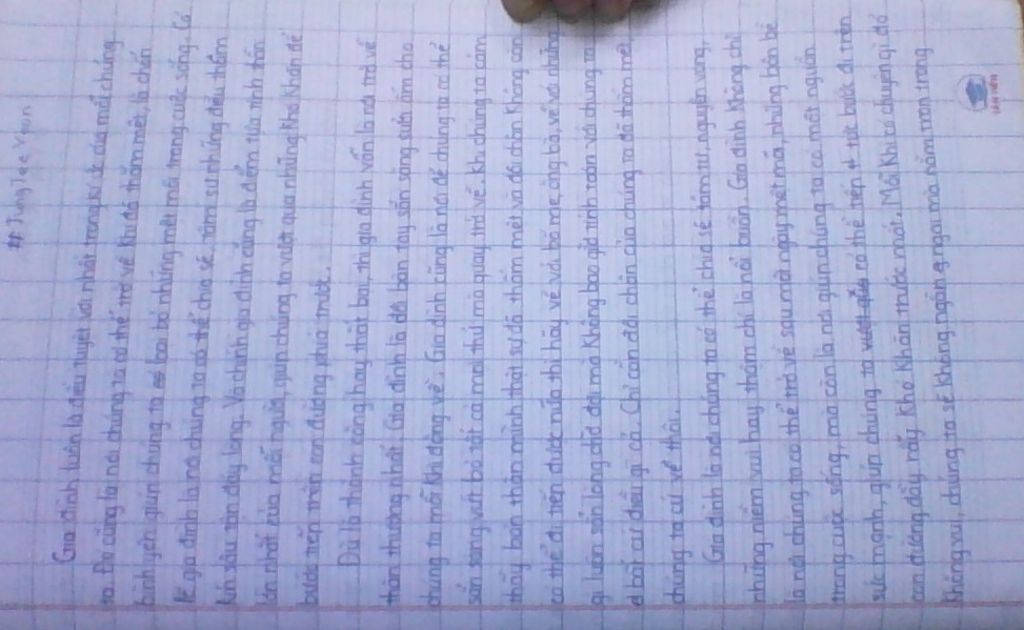 # Jung Tee Yoon
Gia đình luôn là điều tuyệt vời nhất trong kí ức của mỗi chúng
ta. Đó cũng là nơi chúng ta có thể trở về khi đã thấm mệt, là chốn
bình yên giúp chúng ta bỏ những mệt mỏi trong cuộc sống. Có
lẽ gia đình là nơi chúng ta có thể chia sẻ, tâm sự những điều thầm
kín sâu tận đáy lòng. Và chính gia đình cũng là điểm tựa tinh thần
lớn nhất của mỗi người, giúp chúng ta vượt qua những khó khăn để
bước tiếp trên con đường phía trước.
Dù là thành công hay thất bại, thì gia đình vẫn là nơi trở về
thân thương nhất. Gia đình là đôi bàn tay, sẵn sàng sưởi ấm cho
chúng ta mỗi khi đông về. Gia đình cũng là nơi để chúng ta có thể
sẵn sàng vứt bỏ tất cả mọi thứ mà quay trở về. Khi chúng ta cảm
thấy bản thân mình thật sự đã thấm mệt và đôi chân không còn
có thể đi tiếp được nữa thì hãy về với bố mẹ, ông bà, về với những
gì luôn sẵn lòng chờ đợi mà không bao giờ tính toán với chúng ta
bất cứ điều gì cả. Chỉ cần đôi chân của chúng ta đã thấm mệt
chúng ta cứ về thôi.
Gia đình là nơi chúng ta có thể chia sẻ tâm tư, nguyện vọng,
những niềm vui hay thậm chí là nỗi buồn. Gia đình không chỉ
là nơi chúng ta có thể trở về sau một ngày mệt mỏi, những bộn bề
trong cuộc sống, mà còn là nơi giúp chúng ta có một nguồn
sức mạnh, giúp chúng ta có thể tiếp tục bước đi trên
con đường đầy rẫy khó khăn trước mắt. Mỗi khi có chuyện gì đó
không vui, chúng ta sẽ không ngần ngại mà nằm trọn trong